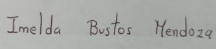 Imelda Bustos Mendoza